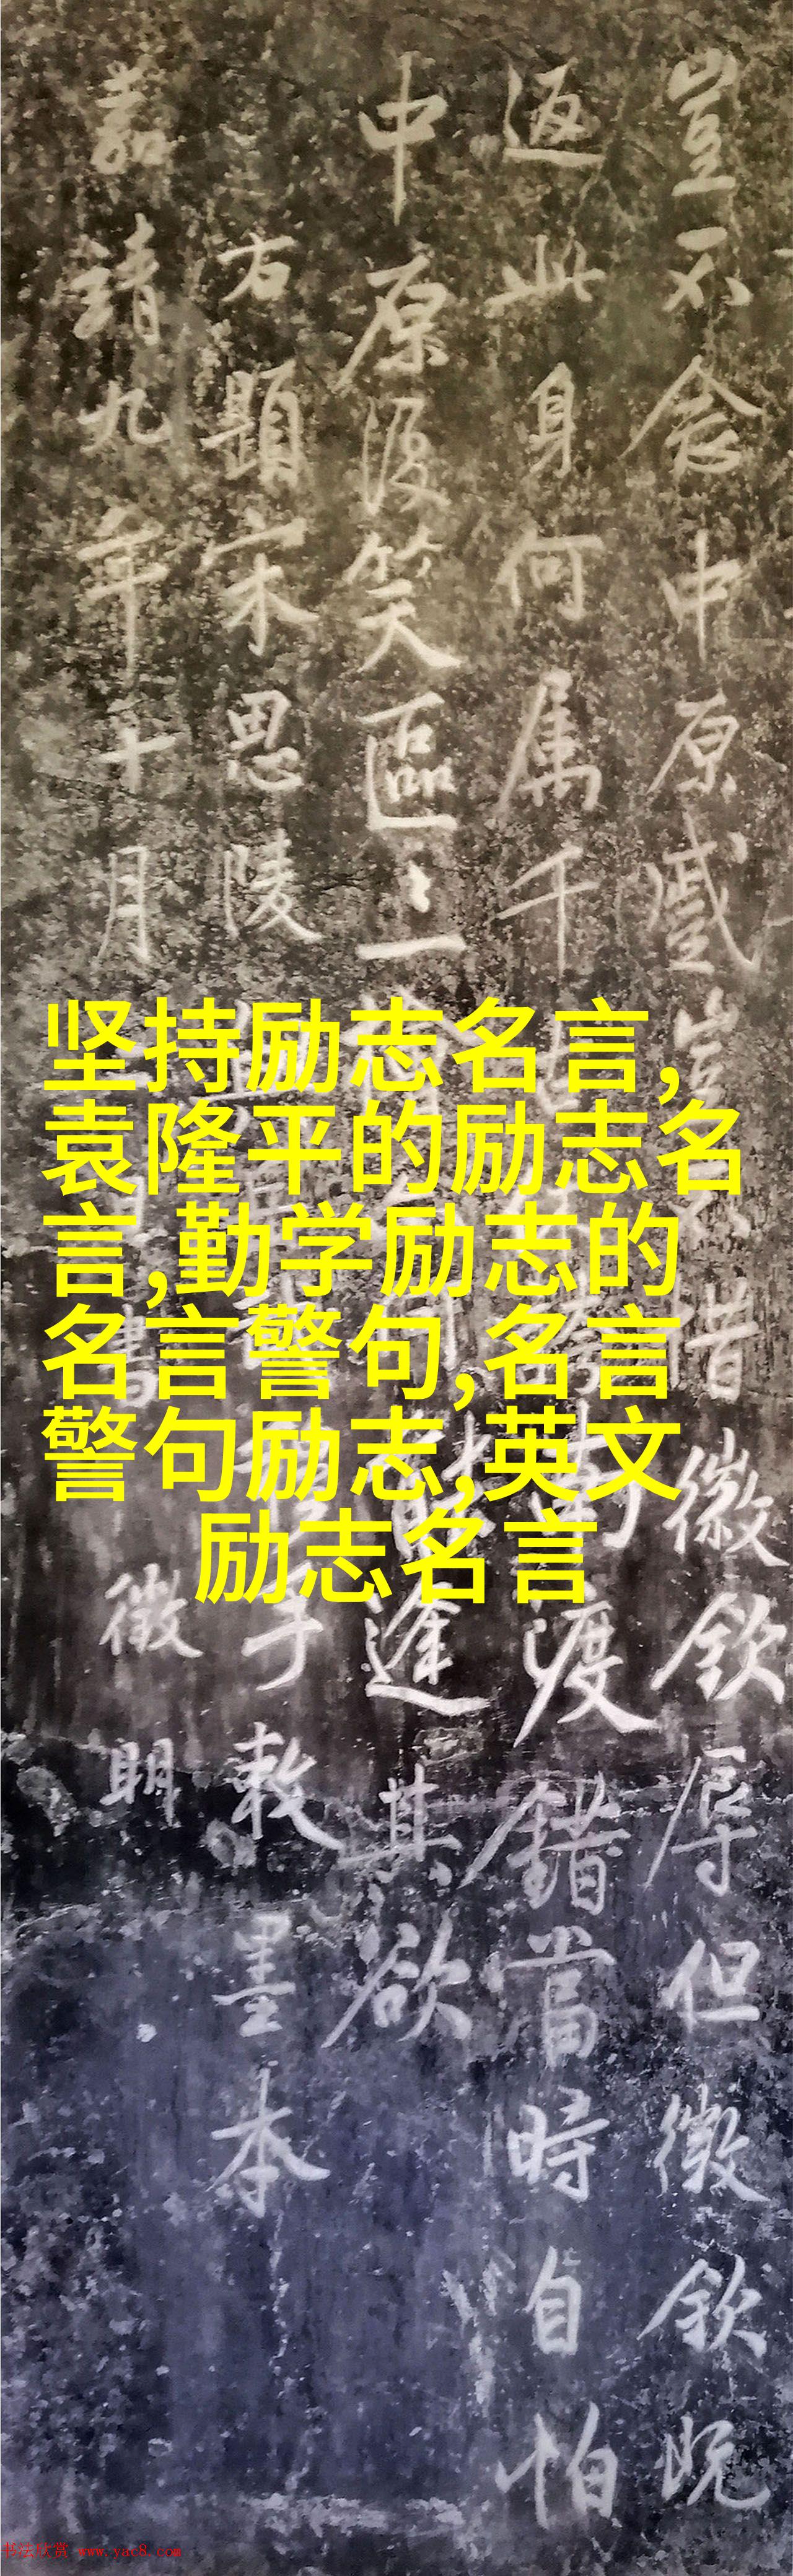 豈不念中原蹙豈惜徽欽辱但徽欽既
返此身何属千渡錯當時自怕
中原復笑區〻一逢其欲
右題宋思陵手敕墨本
嘉靖九年十月徵明
坚持励志名言,
袁隆平的励志名
言,勤学励志的
名言警句,名言
警句励志,英文
励志名言
书法欣赏 www.yac8.com